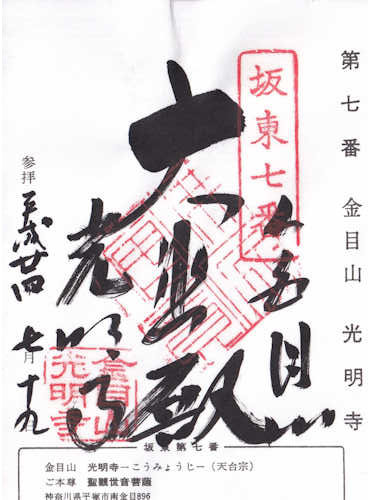 第七番 金目山 光明寺
坂東七番
金目山
大悲殿
光明寺
金目山
光明寺
参拝 平成廿四 七月十九
坂東第七番
金目山 光明寺―こうみょうじ―(天台宗)
ご本尊 聖観世音菩薩
神奈川県平塚市南金目896